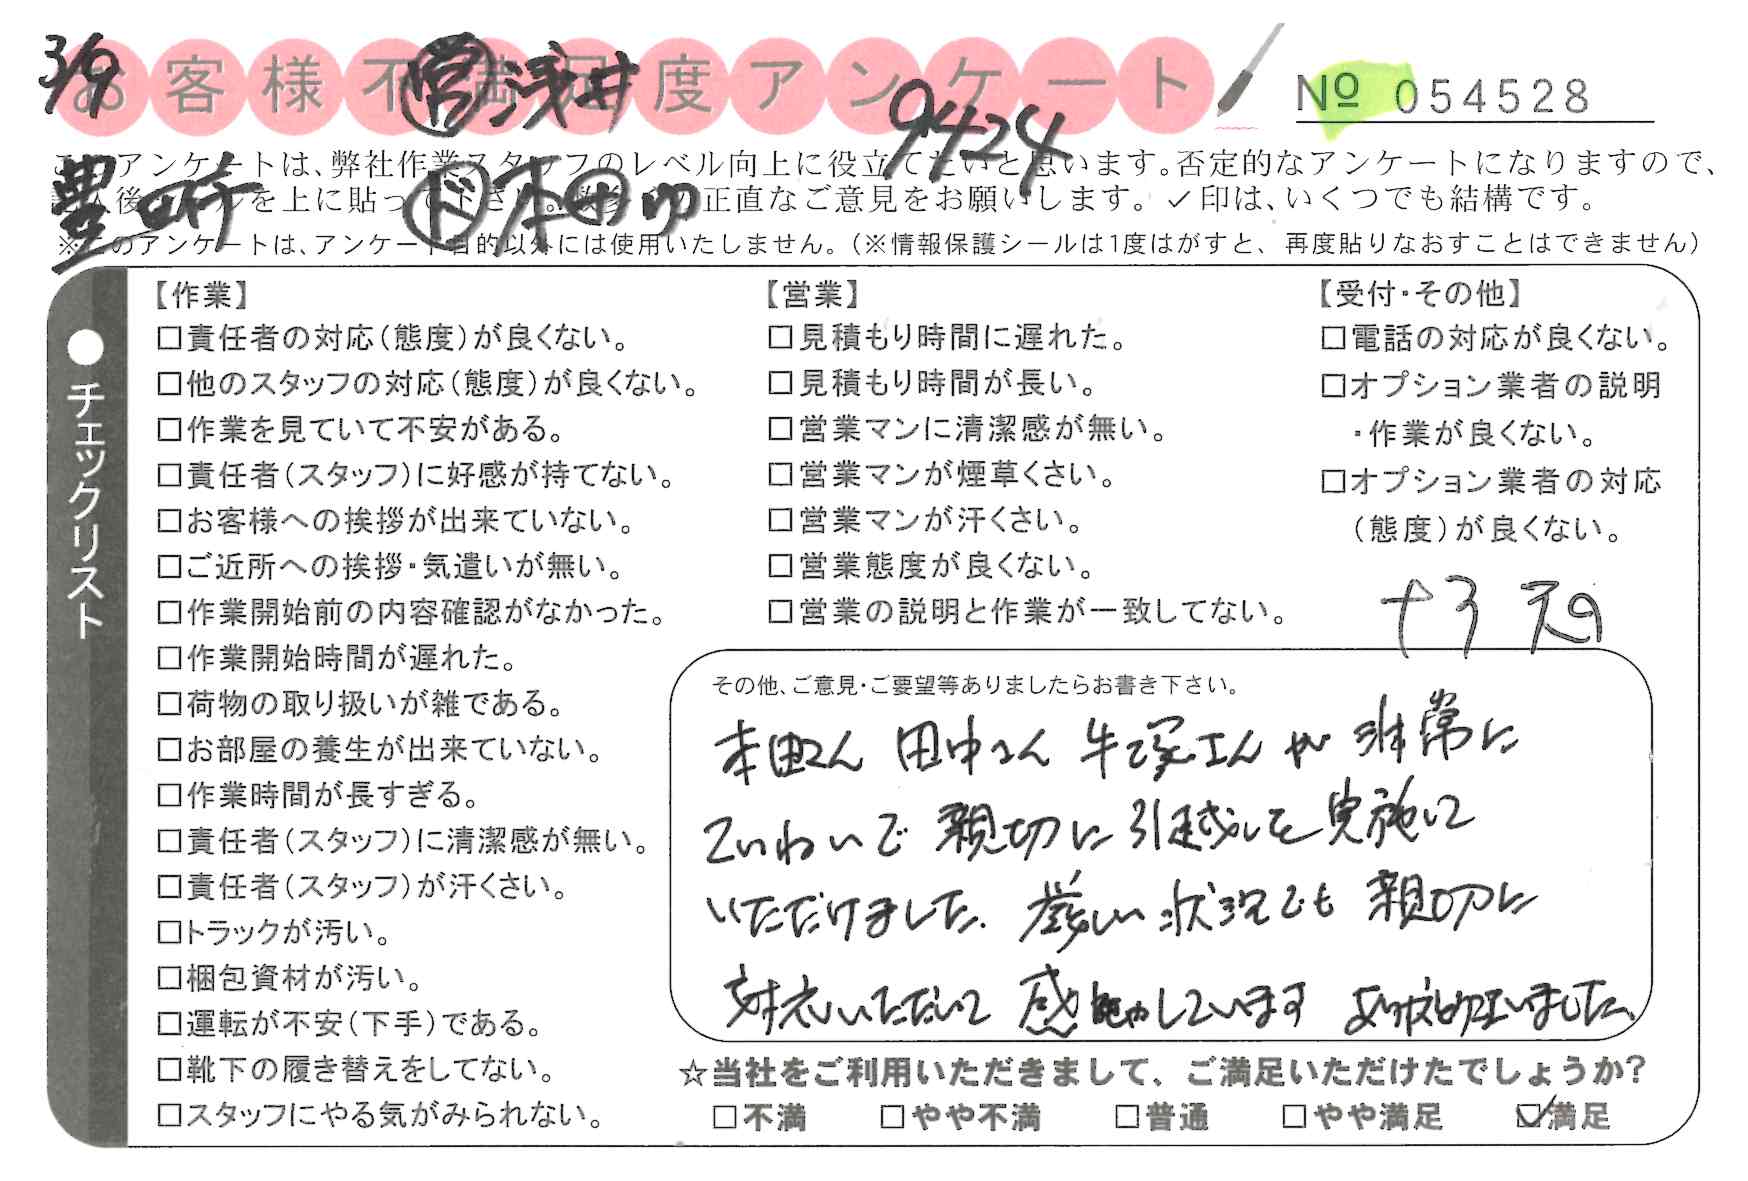 3/9
お客様不満足度アンケート
㊂浅井
9424
№ 054528
このアンケートは、弊社作業スタッフのレベル向上に役立てたいと思います。否定的なアンケートになりますので、
記入後シールを上に貼って下さい。数多くの正直なご意見をお願いします。✓印は、いくつでも結構です。
※このアンケートは、アンケート目的以外には使用いたしません。(※情報保護シールは1度はがすと、再度貼りなおすことはできません)
ド 本田
●チェックリスト
【作業】
□責任者の対応(態度)が良くない。
□他のスタッフの対応(態度)が良くない。
□作業を見ていて不安がある。
□責任者(スタッフ)に好感が持てない。
□お客様への挨拶が出来ていない。
□ご近所への挨拶・気遣いが無い。
□作業開始前の内容確認がなかった。
□作業開始時間が遅れた。
□荷物の取り扱いが雑である。
□お部屋の養生が出来ていない。
□作業時間が長すぎる。
□責任者(スタッフ)に清潔感が無い。
□責任者(スタッフ)が汗くさい。
□トラックが汚い。
□梱包資材が汚い。
□運転が不安(下手)である。
□靴下の履き替えをしてない。
□スタッフにやる気がみられない。
【営業】
□見積もり時間に遅れた。
□見積もり時間が長い。
□営業マンに清潔感が無い。
□営業マンが煙草くさい。
□営業マンが汗くさい。
□営業態度が良くない。
□営業の説明と作業が一致してない。
【受付・その他】
□電話の対応が良くない。
□オプション業者の説明
・作業が良くない。
□オプション業者の対応
(態度)が良くない。
その他、ご意見・ご要望等ありましたらお書き下さい。
本田さん 田中さん 牛塚さんが 非常に
ていねいで 親切に引越しを実施して
いただけました. 厳しい状況でも 親切に
対応いただいて 感謝しています ありがとうございました。
☆当社をご利用いただきまして、ご満足いただけたでしょうか?
□不満 □やや不満 □普通 □やや満足 ☑満足